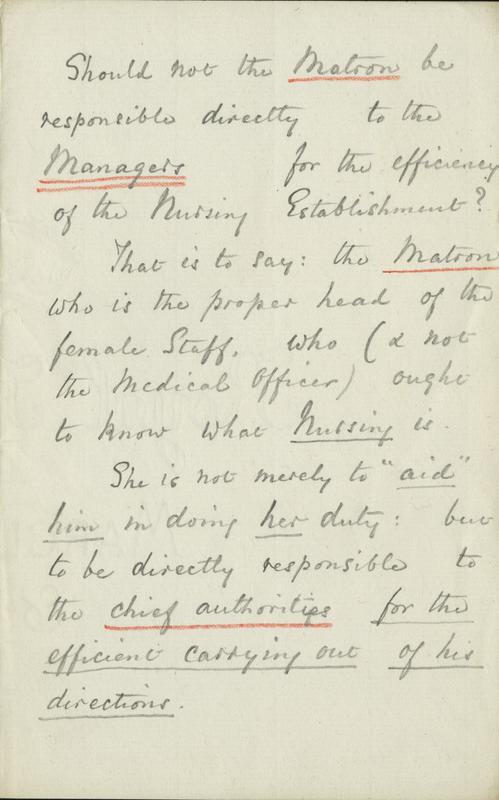 Should not the Matron be
responsible directly to the
Managers for the efficiency
of the Nursing Establishment?
That is to say: the Matron
who is the proper head of the
female Staff, who (& not
the Medical Officer) ought
to know what Nursing is.
She is not merely to "aid"
him in doing her duty: but
to be directly responsible to
the chief authorities for the
efficient carrying out of his
directions.